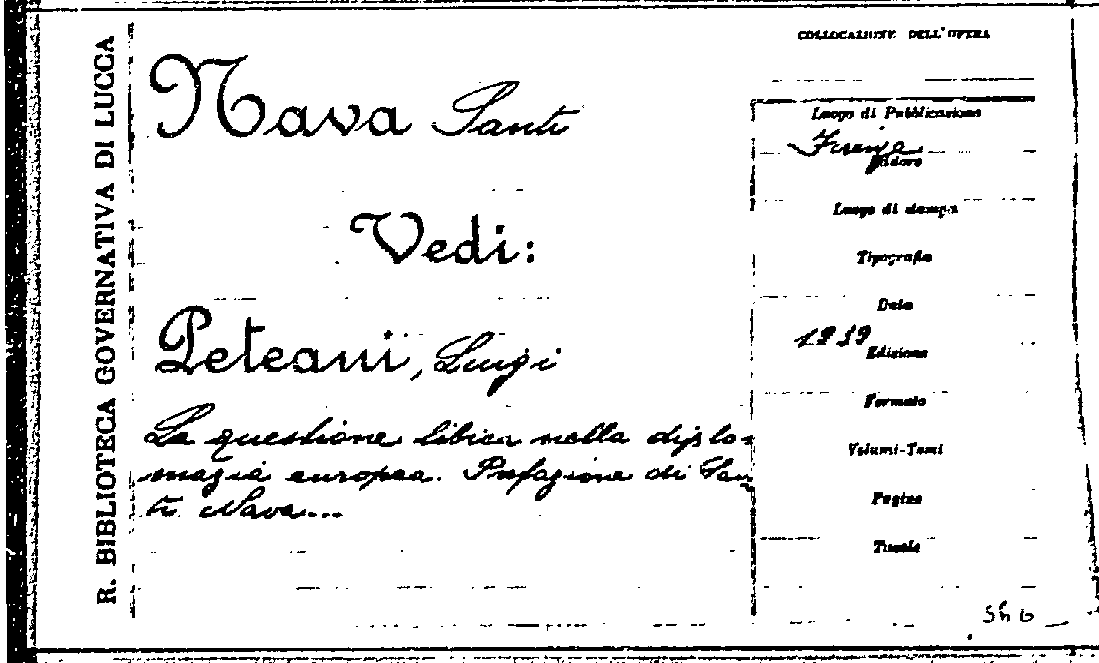 R. BIBLIOTECA GOVERNATIVA DI LUCCA
Nava Santi
Vedi:
Peteani, Luigi
La questione libica nella diplo=
mazia europea. Prefazione di San=
ti Nava...
COLLOCAZIONE DELL'OPERA
Luogo di Pubblicazione
Firenze
Editore
Luogo di stampa
Tipografia
Data
1939
Edizione
Formato
Volumi-Tomi
Pagine
Tavole